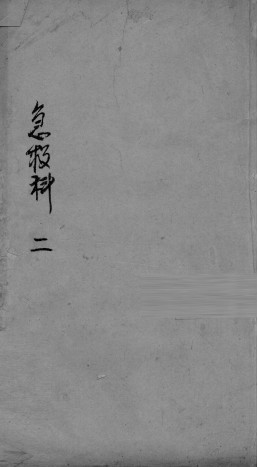 急救科 二